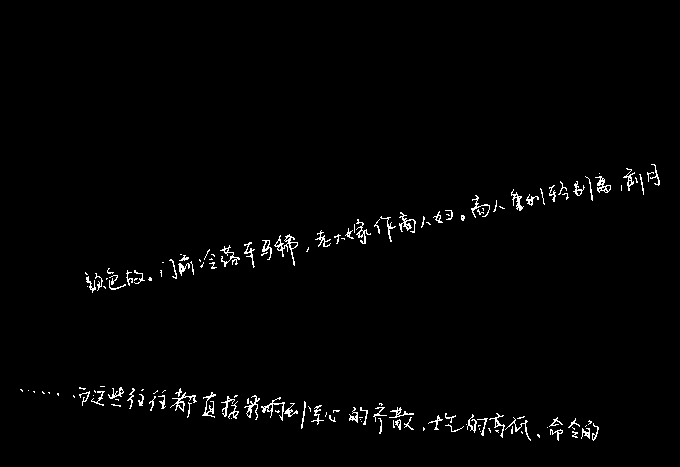 颜色故。门前冷落车马稀，老大嫁作商人妇。商人重利轻别离，前月
……而这些往往都直接影响到军心的齐散、士气的高低、命令的